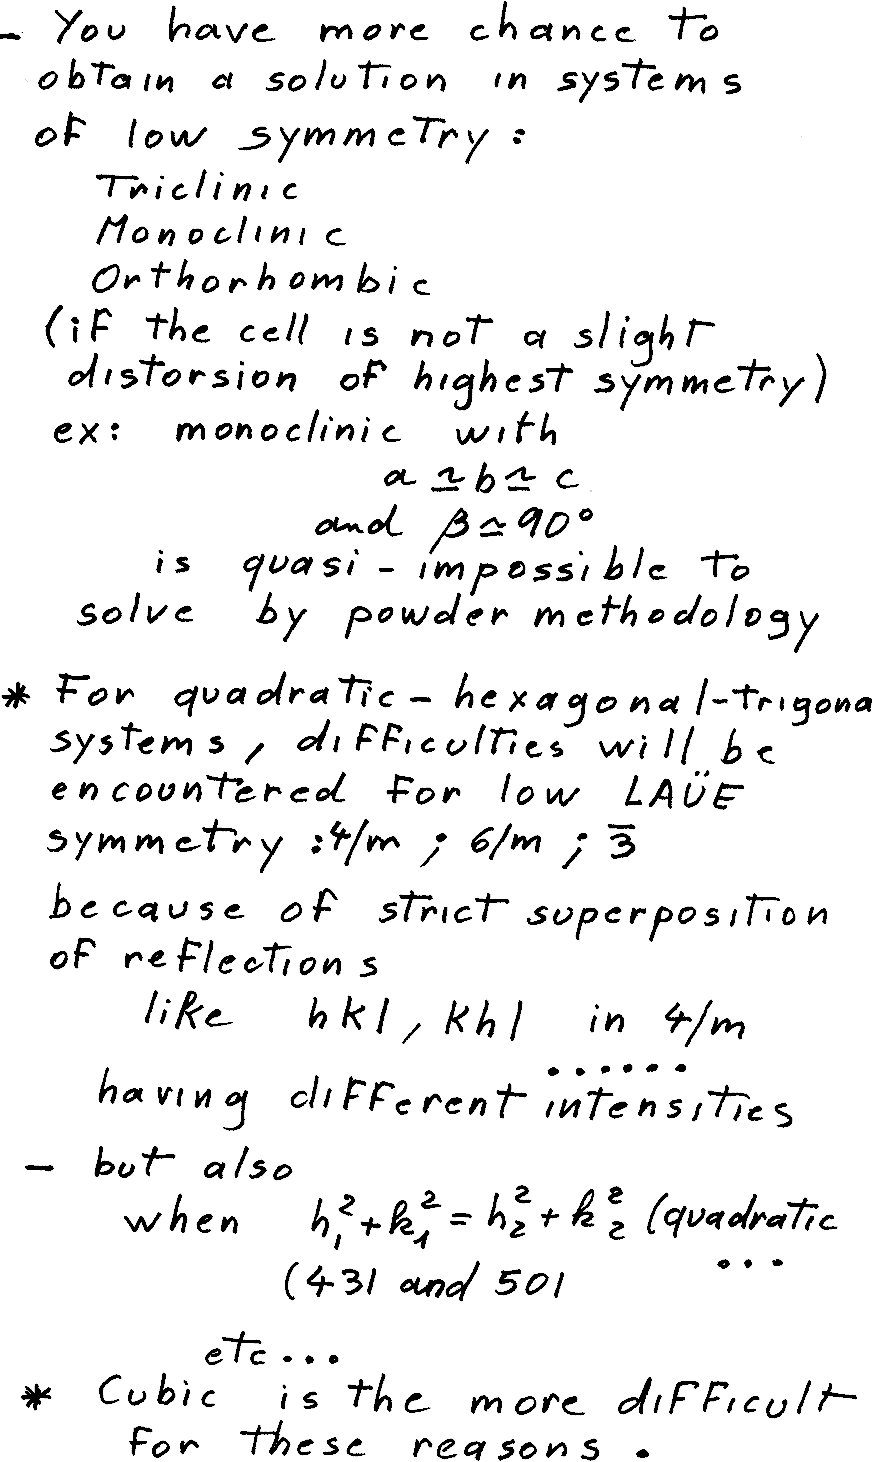 - You have more chance to
obtain a solution in systems
of low symmetry :
Triclinic
Monoclinic
Orthorhombic
(if the cell is not a slight
distorsion of highest symmetry)
ex: monoclinic with
a ≃ b ≃ c
and β ≃ 90°
is quasi-impossible to
solve by powder methodology
* For quadratic - hexagonal-trigona
systems, difficulties will be
encountered for low LAÜE
symmetry : 4/m ; 6/m ; 3̅
because of strict superposition
of reflections
like hkl, khl in 4/m
......
having different intensities
- but also
when h₁² + k₁² = h₂² + k₂² (quadratic
...
(43l and 50l
etc...
* Cubic is the more difficult
for these reasons.